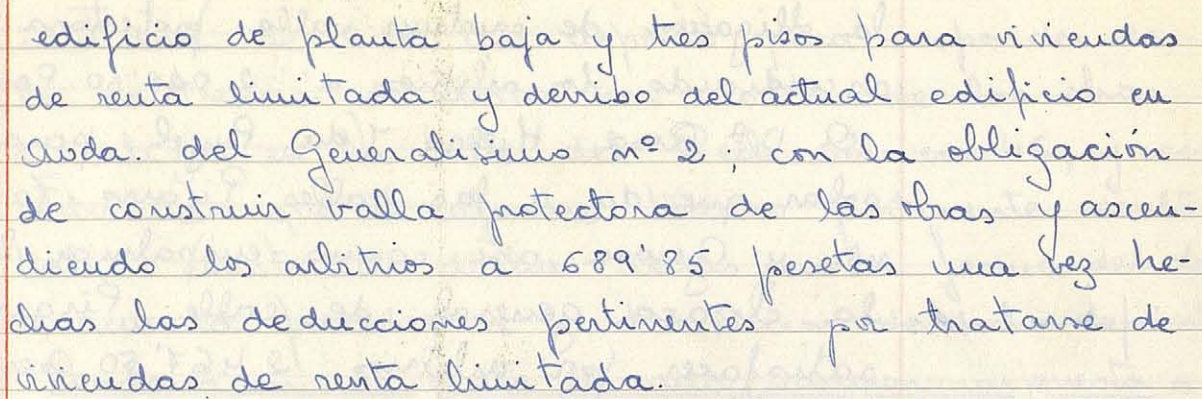 edificio de planta baja y tres pisos para viviendas
de renta limitada y derribo del actual edificio en
Avda. del Generalisimo nº 2, con la obligación
de construir valla protectora de las obras y ascen-
diendo los arbitrios a 689'85 pesetas una vez he-
chas las deducciones pertinentes por tratarse de
viviendas de renta limitada.